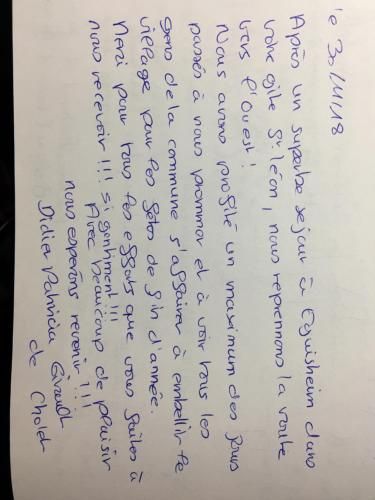 le 30/11/18
Après un superbe séjour à Eguisheim dans
votre gîte St Léon, nous reprennons la route
vers l'Ouest!
Nous avons profité un maximum des jours
passés à nous promner et à voir tous les
gens de la commune s'affairer à embellir le
village pour les fêtes de fin d'année.
Merci pour tous les efforts que vous faites à
nous recevoir!!! si gentiment!!!
Avec beaucoup de plaisir
nous espérons revenir!!!
Didier Patricia Giraud
de Cholet